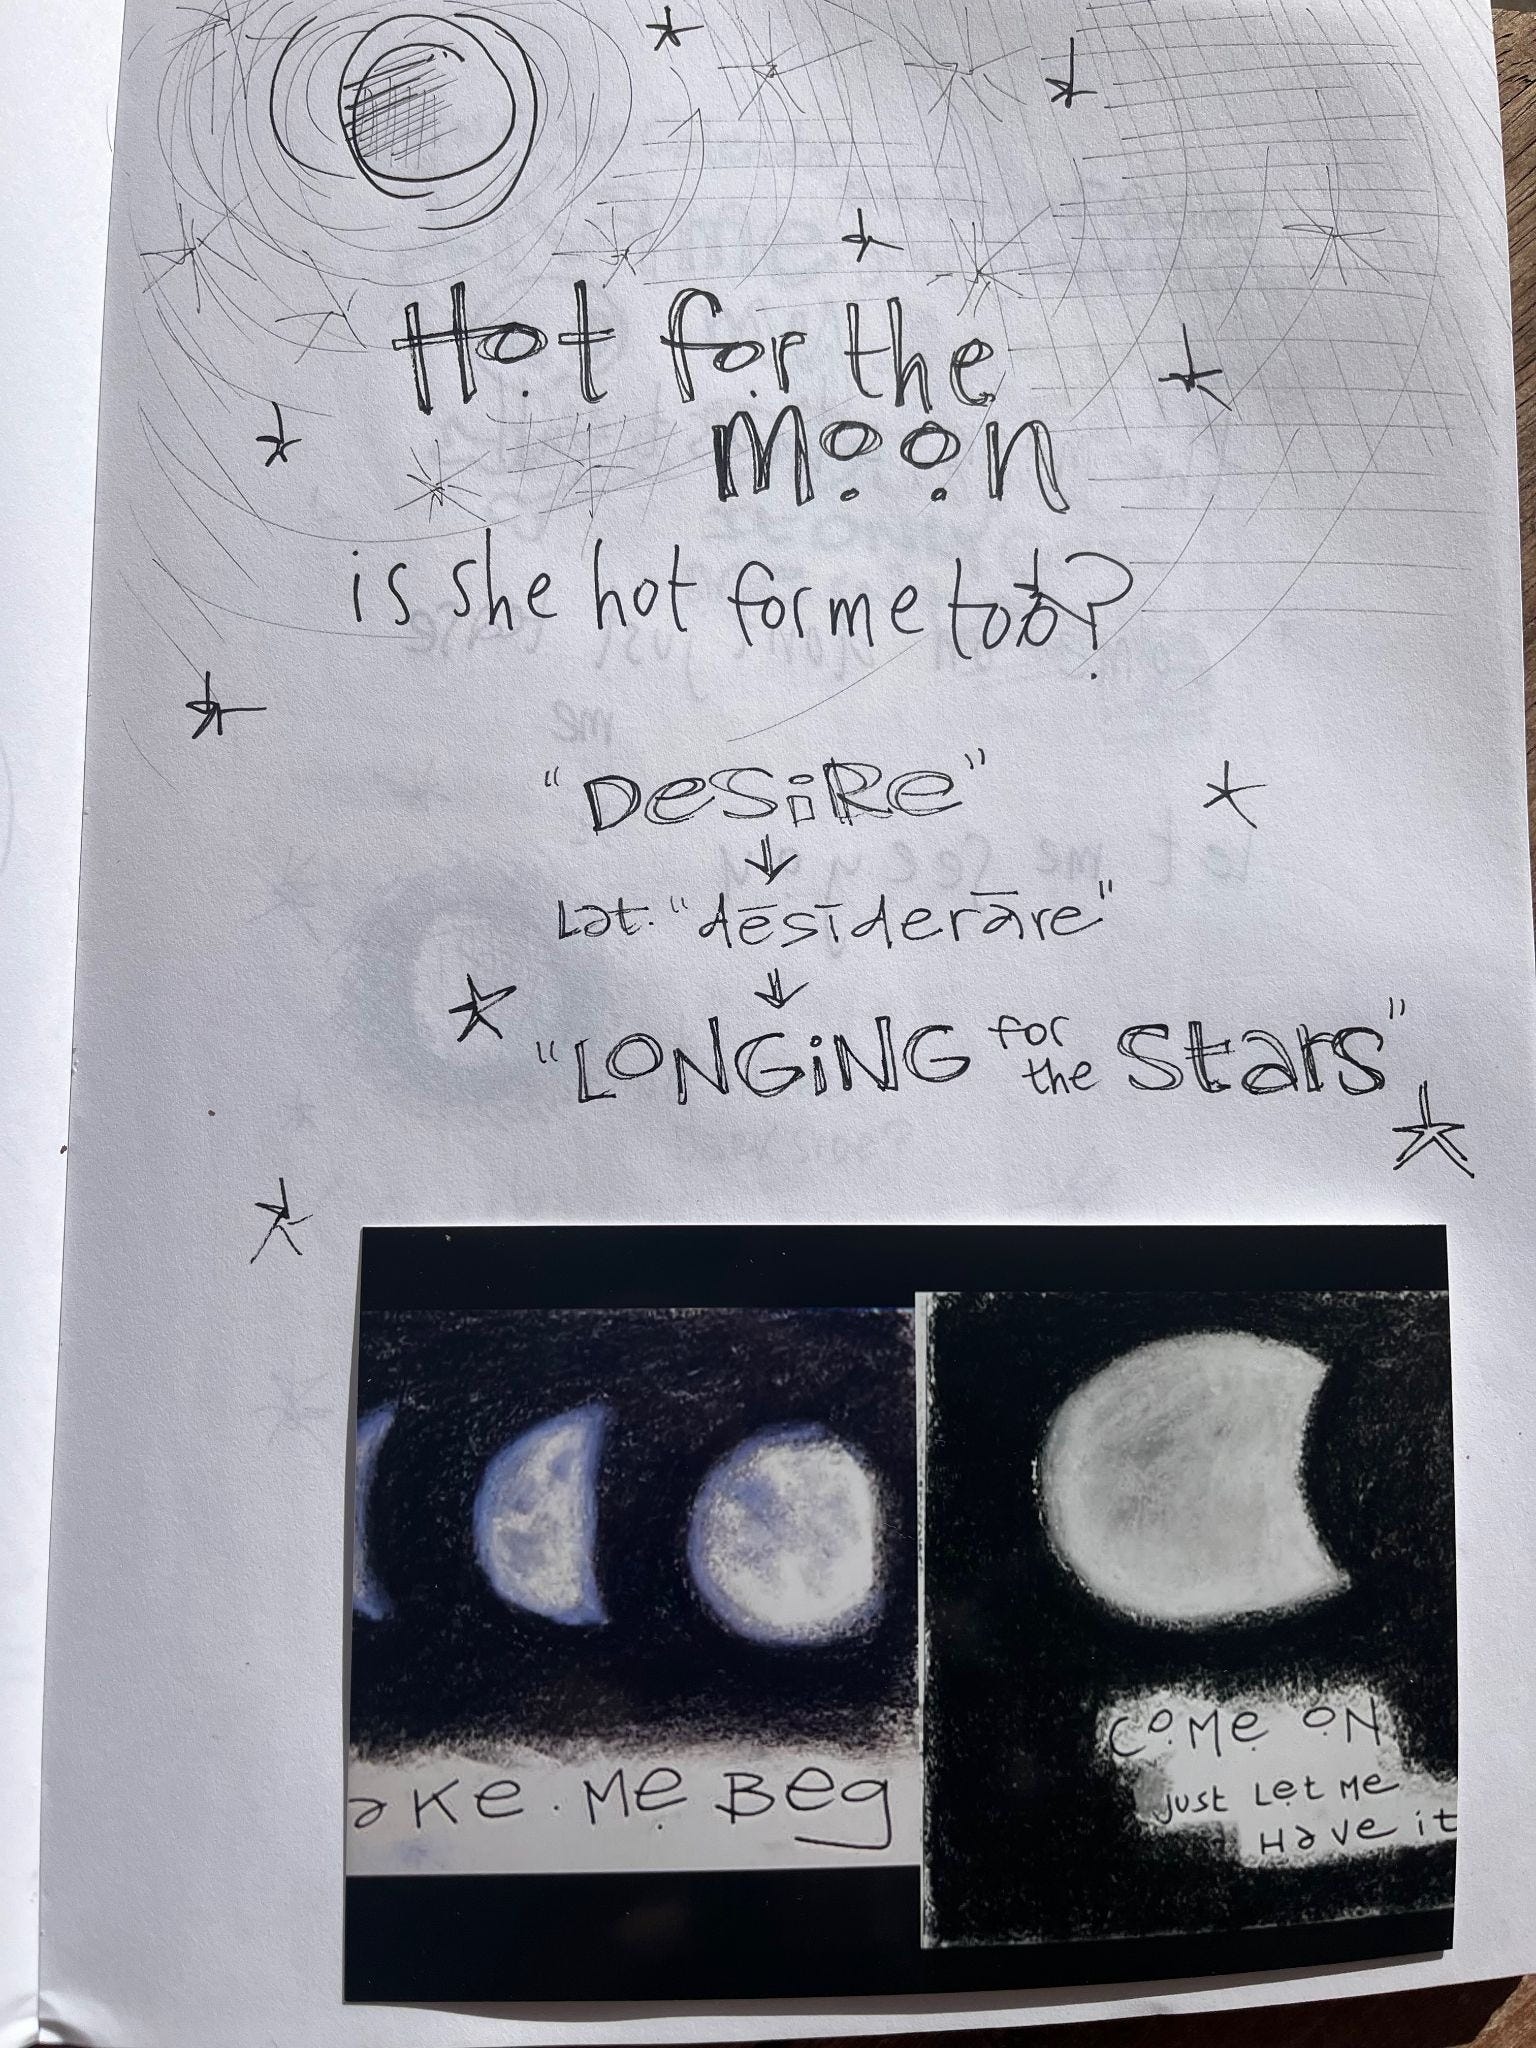 Hot for the
Moon
is she hot for me too?
"DeSiRe"
Lat. "dēsīderāre"
"LONGiNG for the Stars"
ake Me Beg
COMe ON
just Let Me
Have it